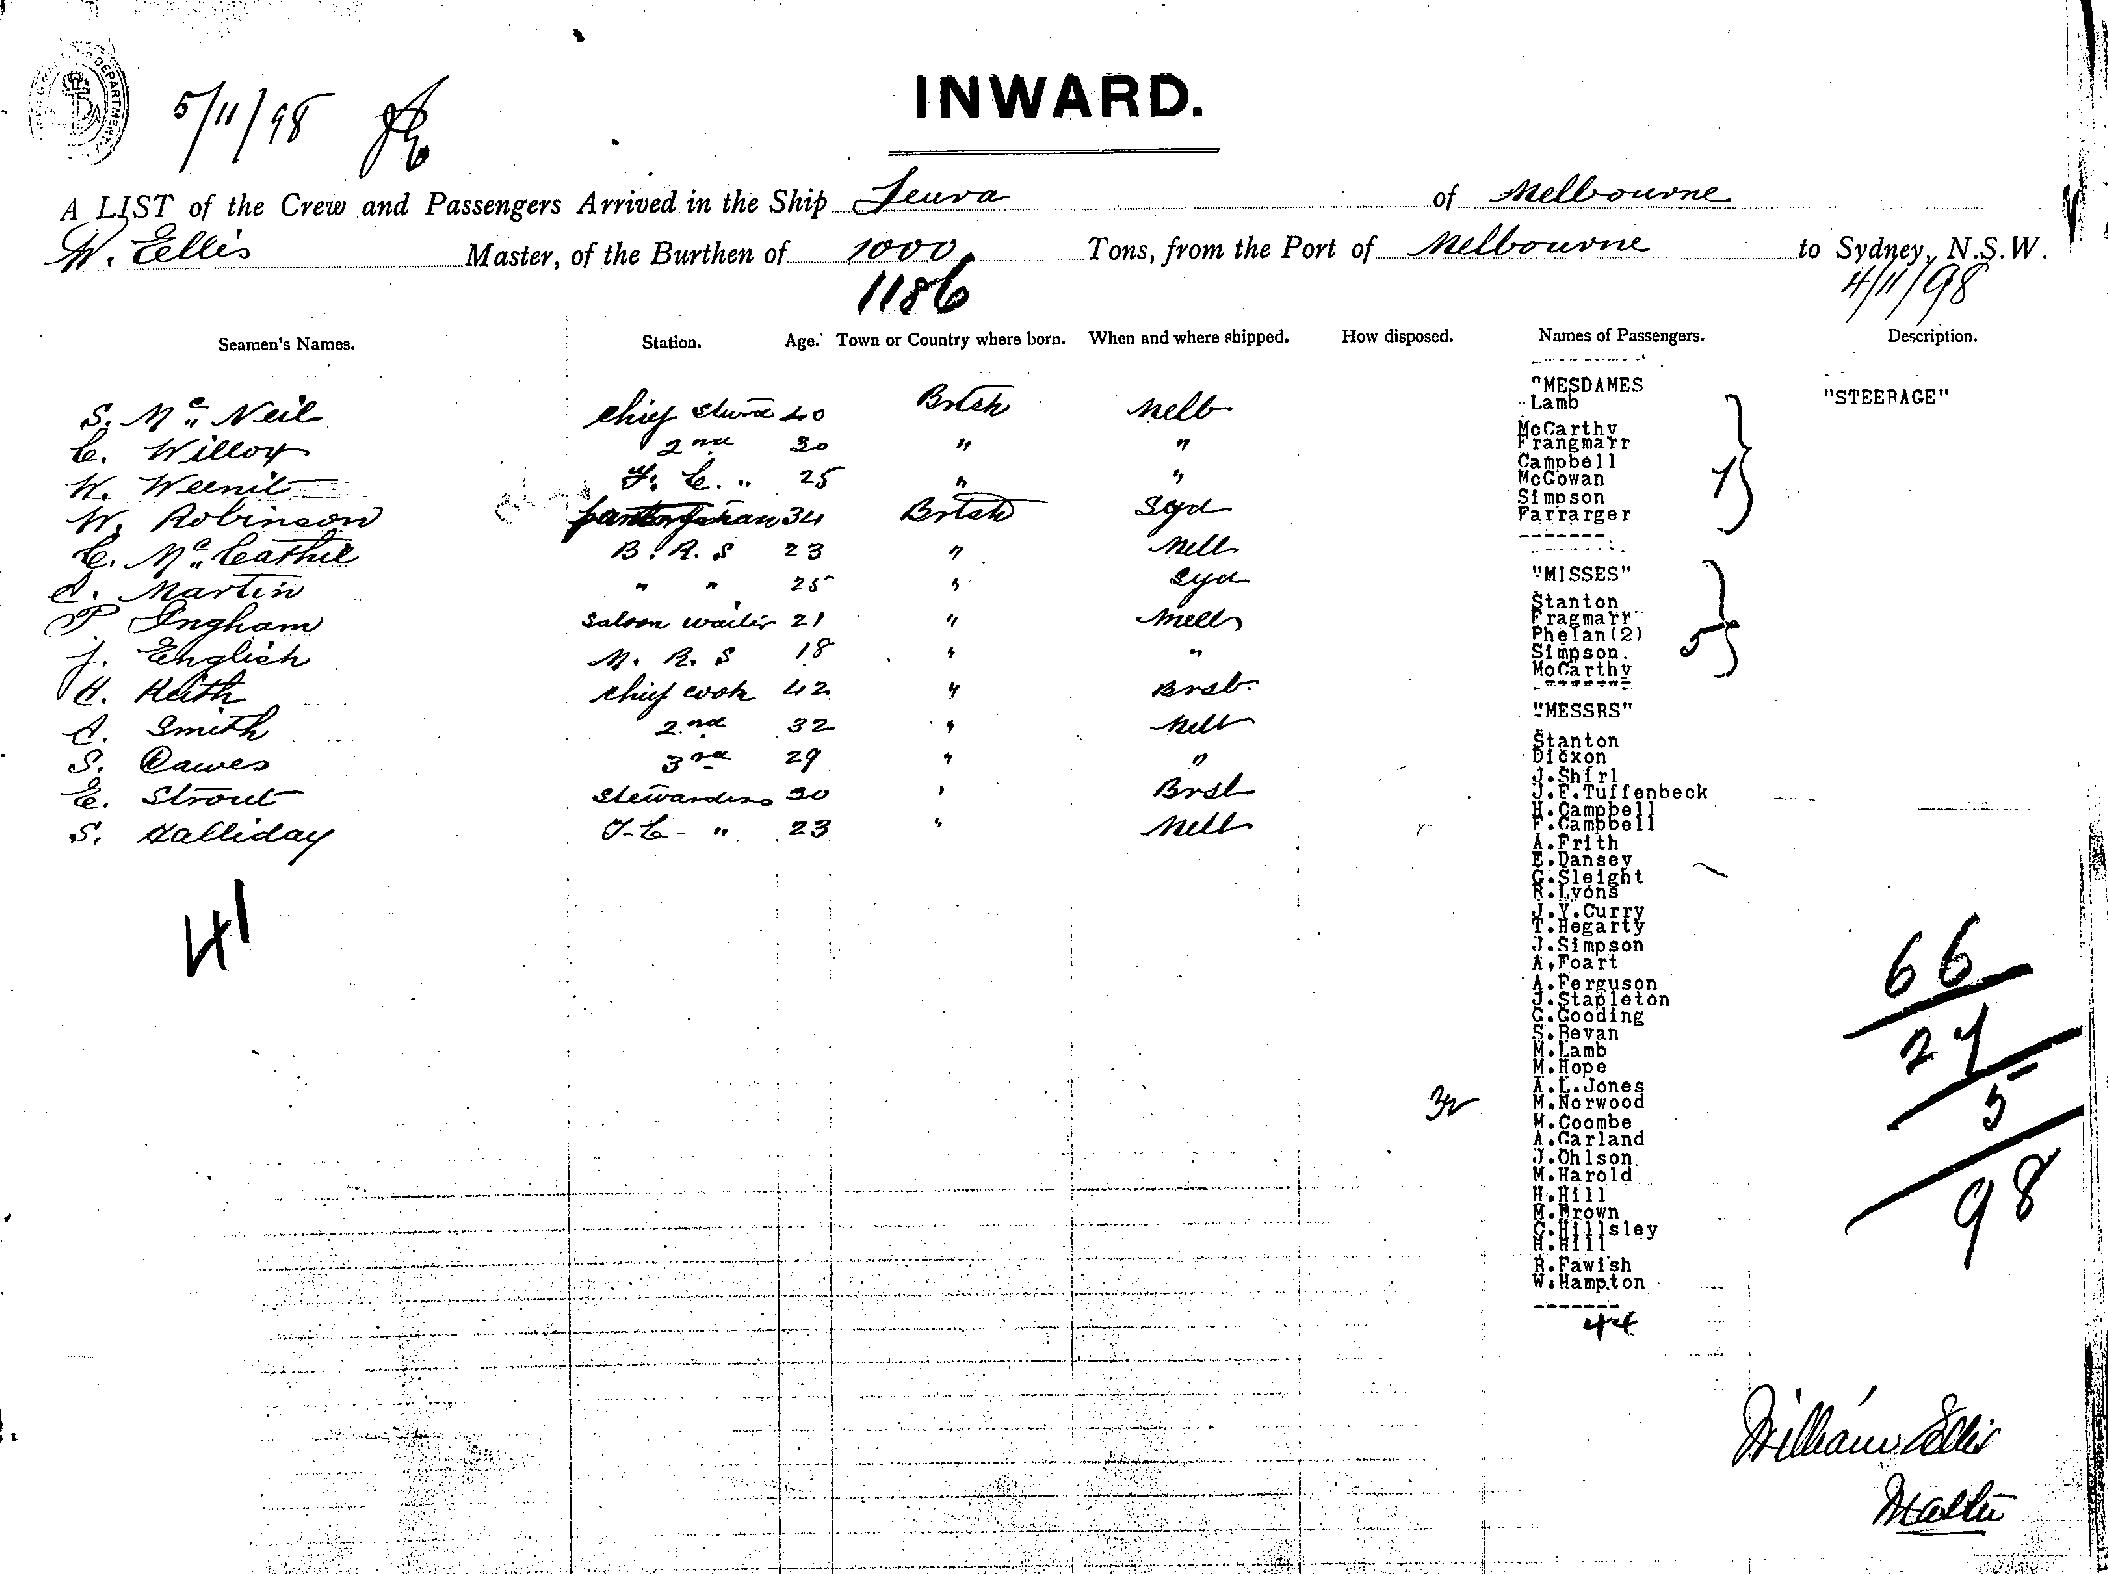 DEPARTMENT
5/11/98
INWARD.
A LIST of the Crew and Passengers Arrived in the Ship Leura of Melbourne
W. Ellis Master, of the Burthen of 1000 Tons, from the Port of Melbourne to Sydney, N.S.W.
1186 4/11/98
Seamen's Names. Station. Age. Town or Country where born. When and where shipped. How disposed. Names of Passengers. Description.
S. Mc Neil chief stwd 40 Brtsh Melb
C. Willox 2nd 30 " "
W. 25 " "
W. Robinson pantryman 34 Brtsh Syd
C. Mc Cathie B. R. S 23 " Melb
Martin " " 25 " Syd
P Ingham Saloon waiter 21 " Melb
J. English M. R. S 18 " "
H. Keith chief cook 42 " Brsb.
A. Smith 2nd 32 " Melb
S. Cawes 3rd 29 " "
E. Strout Stewardess 30 " Brsb
S. Halliday F. C. " 23 " Melb
41
"MESDAMES
Lamb
McCarthy
Frangmarr
Campbell
McGowan
Simpson
Farrarger
7
"MISSES"
Stanton
Fragmarr
Phelan(2)
Simpson.
McCarthy
5
"MESSRS"
Stanton
Dickon
J.Shirl
J.F.Tuffenbeck
H.Campbell
F.Campbell
A.Frith
E.Dansey
G.Sleight
R.Lyons
J.Y.Curry
T.Hegarty
J.Simpson
A.Foart
A.Ferguson
J.Stapleton
G.Gooding
S.Bevan
M.Lamb
M.Hope
A.L.Jones
M.Norwood
M.Coombe
A.Garland
J.Ohlson
M.Harold
H.Hill
M.Brown
C.Hillsley
H.Hill
R.Fawish
W.Hampton
32
44
"STEERAGE"
66
27
5
98
William Ellis
Master